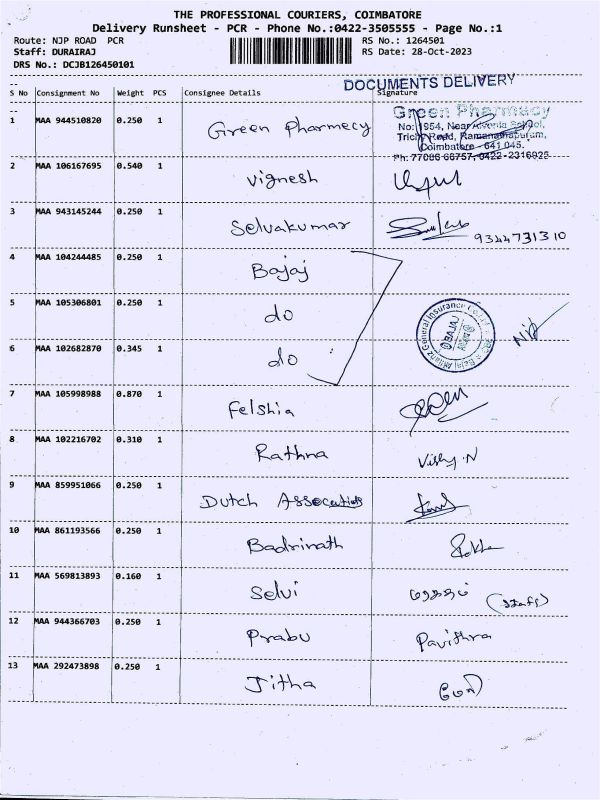 THE PROFESSIONAL COURIERS, COIMBATORE
Delivery Runsheet - PCR - Phone No.:0422-3505555 - Page No.:1
Route: NJP ROAD PCR
RS No.: 1264501
Staff: DURAIRAJ
RS Date: 28-Oct-2023
DRS No.: DCJB126450101
DOCUMENTS DELIVERY
S No Consignment No Weight PCS Consignee Details Signature
1 MAA 944510820 0.250 1 Green Pharmecy
Green Pharmacy
No: 1954, Near School,
Trichy Road, Ramanathapuram,
Coimbatore - 641 045.
Ph: 77086 66757, 0422-2316925
2 MAA 106167695 0.540 1 Vignesh
3 MAA 943145244 0.250 1 Selvakumar 9344731310
4 MAA 104244485 0.250 1 Bajaj
5 MAA 105306801 0.250 1 do
Bajaj Allianz General Insurance Co.
BAJAJ
6 MAA 102682870 0.345 1 do
7 MAA 105998988 0.870 1 Felshia
8 MAA 102216702 0.310 1 Rathna Vishy.N
9 MAA 859951066 0.250 1 Dutch
10 MAA 861193566 0.250 1 Badrinath
11 MAA 569813893 0.160 1 Selvi
12 MAA 944366703 0.250 1 Prabu Pavithra
13 MAA 292473898 0.250 1 Jitha